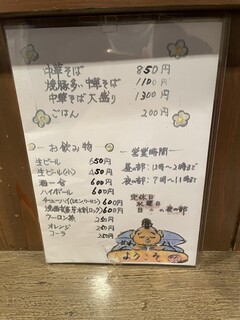 中華そば 850円
焼豚多い中華そば 1100円
中華そば大盛り 1300円
ごはん 200円
お飲み物
生ビール 650円
生ビール(小) 450円
酒一合 600円
ハイボール 600円
チューハイ(レモン・ウーロン) 600円
焼酎(麦・芋・水割・ロック) 600円
ウーロン茶 250円
オレンジ 250円
コーラ 250円
営業時間
昼の部:12時〜2時まで
夜の部:7時〜11時まで
定休日
水曜日
日 の夜の部
ようこそ